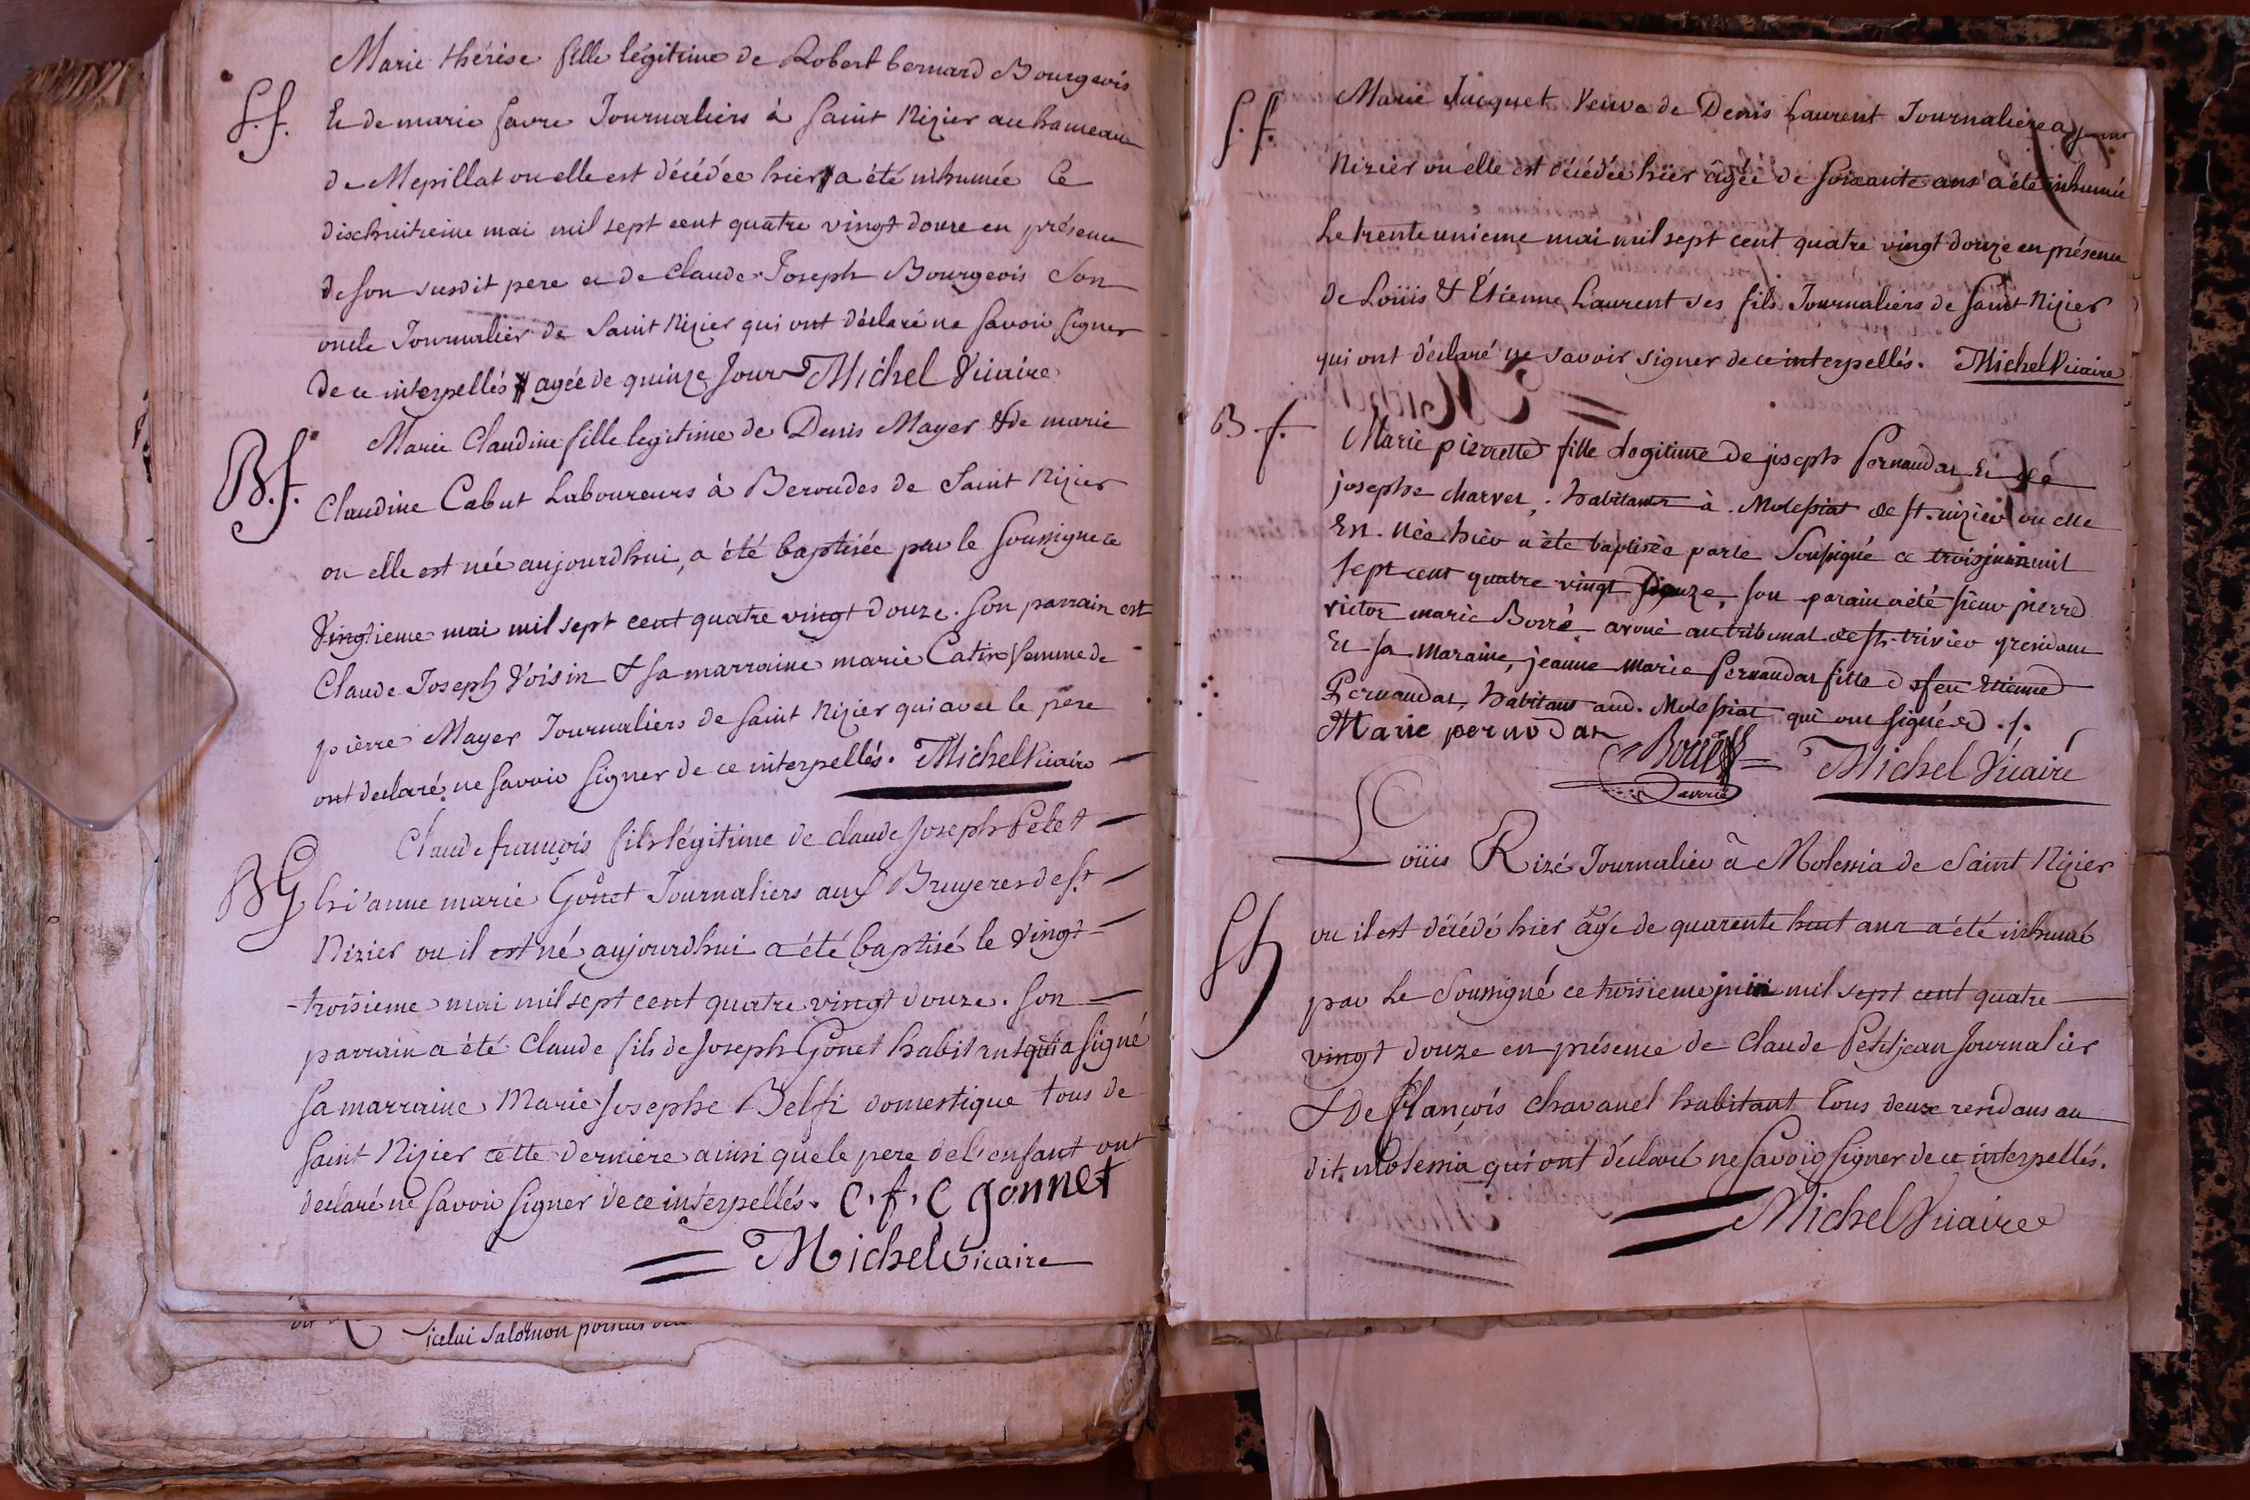 Marie thérèse fille légitime de Robert bernard Bourgeois
S.f. Et de marie favre Journaliers à Saint Nizier au hameau
de Mepillat ou elle est décédée hier a été inhumée Ce
dixhuitieme mai mil sept cent quatre vingt douze en présence
de son susdit pere et de Claude Joseph Bourgeois Son
oncle Journalier de Saint Nizier qui ont déclaré ne savoir signer
de ce interpellés agée de quinze Jours Michel Vicaire
Marie Claudine fille legitime de Denis Mayer & de marie
B.f. Claudine Cabut Laboureurs à Beroudes de Saint Nizier
ou elle est née aujourdhui, a été baptisée par le Soussigné ce
Vingtieme mai mil sept cent quatre vingt douze. Son parrain est
Claude Joseph Voisin & sa marraine marie Catin femme de
pierre Mayer Journaliers de Saint Nizier qui avec le pere
ont declaré ne savoir signer de ce interpellés. Michel Vicaire
Claude françois fils légitime de claude Joseph Petet
BG &d'anne marie Gonet Journaliers aux Bruyeres de st
Nizier ou il est né aujourdhui a été baptisé le vingt-
-troisieme mai mil sept cent quatre vingt douze. Son
parrain a été Claude fils de Joseph Gonet habitant qui a signé
Sa marraine Marie Josephe Belfi domestique tous de
Saint Nizier cette derniere ainsi que le pere de l'enfant ont
declaré ne savoir signer de ce interpellés. C. f. C gonnet
Michel Vicaire
icelui Salomon
Marie Jacquet Veuve de Denis Laurent Journaliere a
S.f. Nizier ou elle est décédée hier âgée de soixante ans a été inhumée
Le trente unieme mai mil sept cent quatre vingt douze en présence
de Loüis & Étienne Laurent ses fils Journaliers de Saint Nizier
qui ont déclaré ne savoir signer de ce interpellés. Michel Vicaire
B f. Marie pierrette fille Legitime de joseph Pernaudat Et de
josephe charvet, habitants à Molessiat de st. nizier ou elle
En. née hier a été baptisée par le Soussigné ce trois juin mil
sept cent quatre vingt Douze, son parain a été sieur pierre
victor marie Borré avoué au tribunal de st. trivier
Et sa maraine, jeanne marie Pernaudat fille d feu Etienne
Pernaudat, habitans aud. Molessiat qui ont signés ./.
Marie pernodat
Michel Vicaire
Loüis Rizé Journalier à Molessia de Saint Nizier
Sh ou il est décédé hier âgé de quarente huit ans a été inhumé
par Le Soussigné ce troisieme juin mil sept cent quatre
vingt douze en présence de Claude Petitjean Journalier
& de françois chavanel habitant tous deux rendans au
dit molessia qui ont déclaré ne savoir signer de ce interpellés.
Michel Vicaire